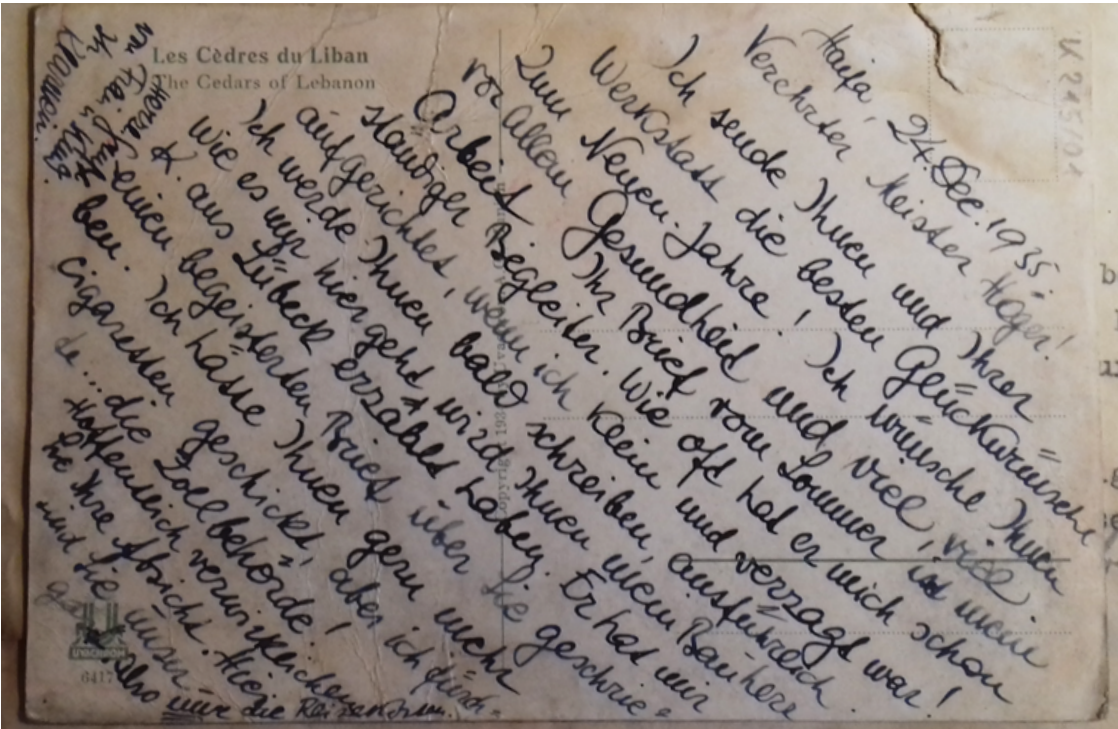 Les Cèdres du Liban
The Cedars of Lebanon
Haifa, 24. Dec. 1935.
Verehrter Meister Höger!
Ich sende Ihnen und Ihrer
Werkstatt die besten Glückwünsche
Zum Neuen Jahre! Ich wünsche Ihnen
vor allem Gesundheit und viel, viel
Arbeit. Ihr Brief vom Sommer ist mein
ständiger Begleiter. Wie oft hat er mich schon
aufgerichtet, wenn ich klein und verzagt war!
Ich werde Ihnen bald schreiben, ausführlich
wie es mir hier geht wird Ihnen mein Bauherr
K. aus Lübeck erzählt haben. Er hat mir
einen begeisterten Brief über Sie geschrie=
ben. Ich hätte Ihnen gern mehr
Cigaretten geschickt, aber ich
de.... die Zollbehörde!
Hoffentlich verwirklichen
Sie Ihre Absicht.
und Sie
Also nur die
Herze
Ihr
Klarwein.
Copyright 193
UVACHROM
6417
K 245/101